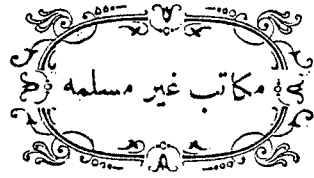 مكاتب غير مسلمه